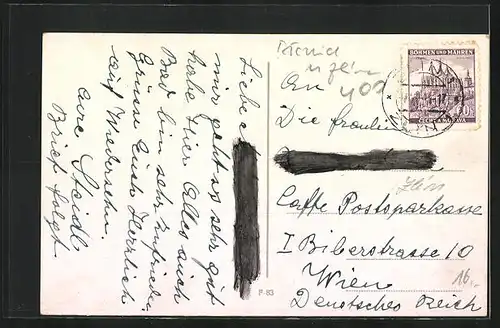 Liebe
mir geht es sehr gut
habe hier Alles auch
Bad bin sehr zufrieden
Grüsse Euch Herzlich
auf Wiedersehn.
eure Steidl
Brief folgt
u Zlín
400
BÖHMEN UND MÄHREN
ČECHY A MORAVA
An
Die fraulein
Zlín
Caffe Postsparkasse
I Biberstrasse 10
Wien
16.-
Deutsches Reich
F-83